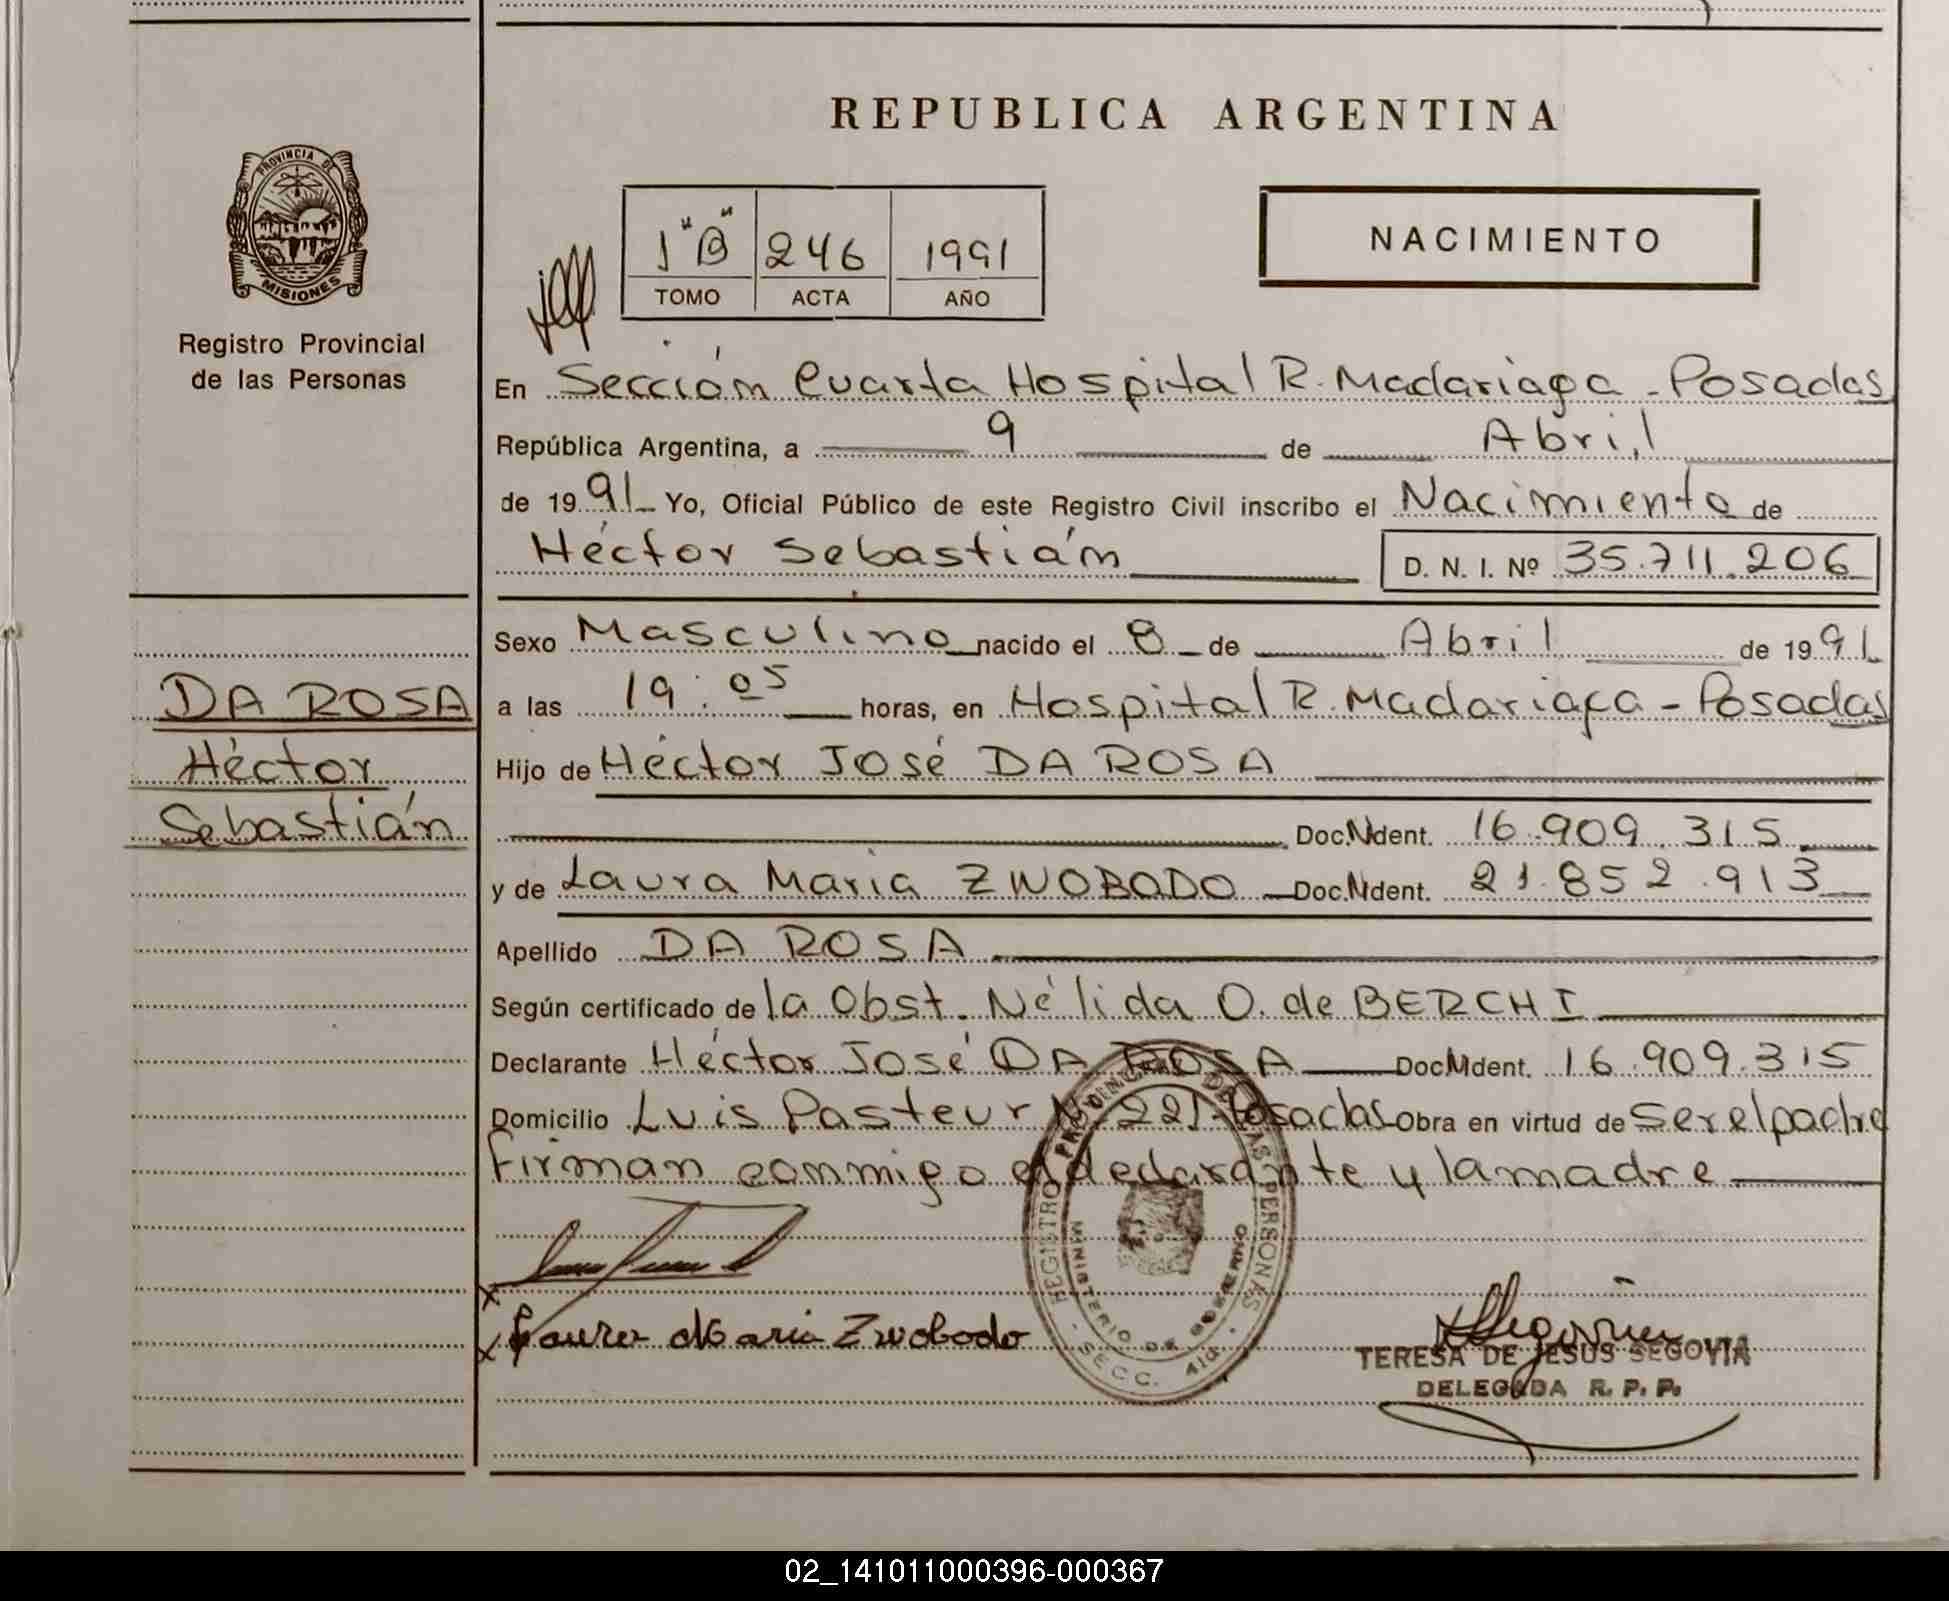 REPUBLICA ARGENTINA
PROVINCIA DE
MISIONES
Registro Provincial
de las Personas
1 "B" 246 1991
TOMO ACTA AÑO
NACIMIENTO
En Sección Cuarta Hospital R. Madariaga - Posadas
República Argentina, a 9 de Abril
de 1991 Yo, Oficial Público de este Registro Civil inscribo el Nacimiento de
Héctor Sebastián D. N. I. Nº 35.711.206
Sexo Masculino nacido el 8 de Abril de 1991
a las 19:05 horas, en Hospital R. Madariaga - Posadas
Hijo de Héctor José DA ROSA
Doc. Ident. 16.909.315
y de Laura Maria ZWOBODO Doc. Ident. 21.852.913
Apellido DA ROSA
Según certificado de la Obst. Nélida O. de BERCHI
Declarante Héctor José DA ROSA Doc. Ident. 16.909.315
Domicilio Luis Pasteur Nº 221 Posadas Obra en virtud de ser el padre
Firman conmigo el declarante y la madre
DA ROSA
Héctor
Sebastián
Laura Maria Zwobodo
REGISTRO PROVINCIAL DE LAS PERSONAS
MINISTERIO DE GOBIERNO
SECC. 4ta.
TERESA DE JESUS SEGOVIA
DELEGADA R. P. P.
02_141011000396-000367